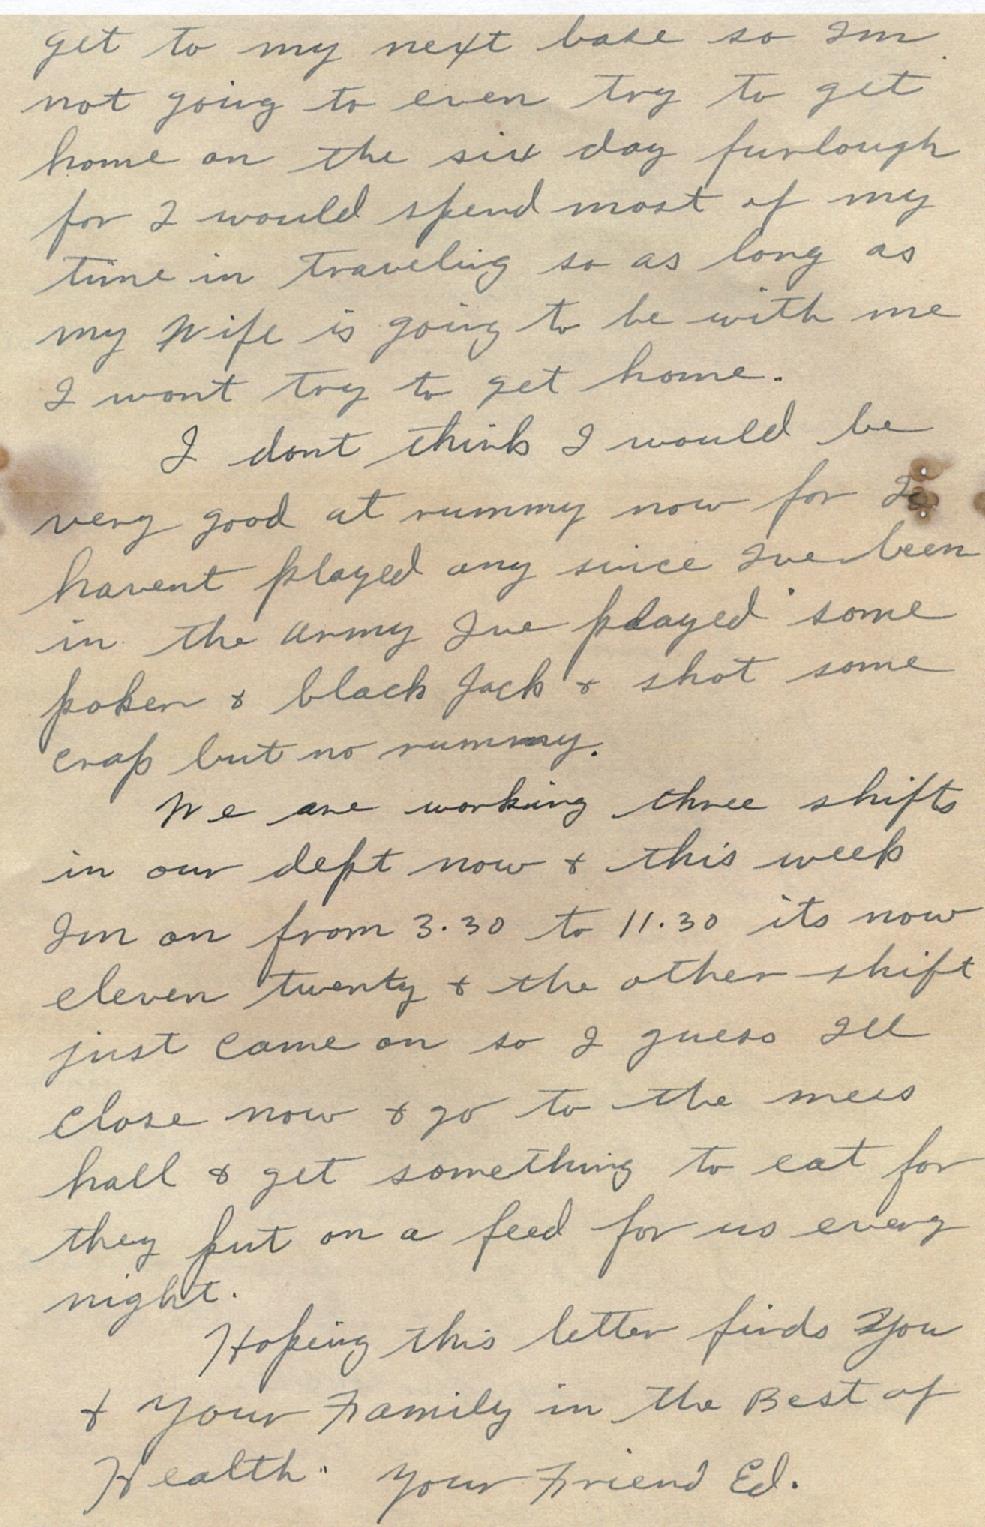 get to my next base so Im
not going to even try to get
home on the six day furlough
for I would spend most of my
time in traveling so as long as
my Wife is going to be with me
I wont try to get home.
I dont think I would be
very good at rummy now for I
havent played any since Ive been
in the army Ive played some
poker & black Jack & shot some
crap but no rummy.
We are working three shifts
in our dept now & this week
Im on from 3.30 to 11.30 its now
eleven twenty & the other shift
just came on so I guess Ill
close now & go to the mess
hall & get something to eat for
they put on a feed for us every
night.
Hoping this letter finds You
& Your Family in the Best of
Health. Your Friend Ed.